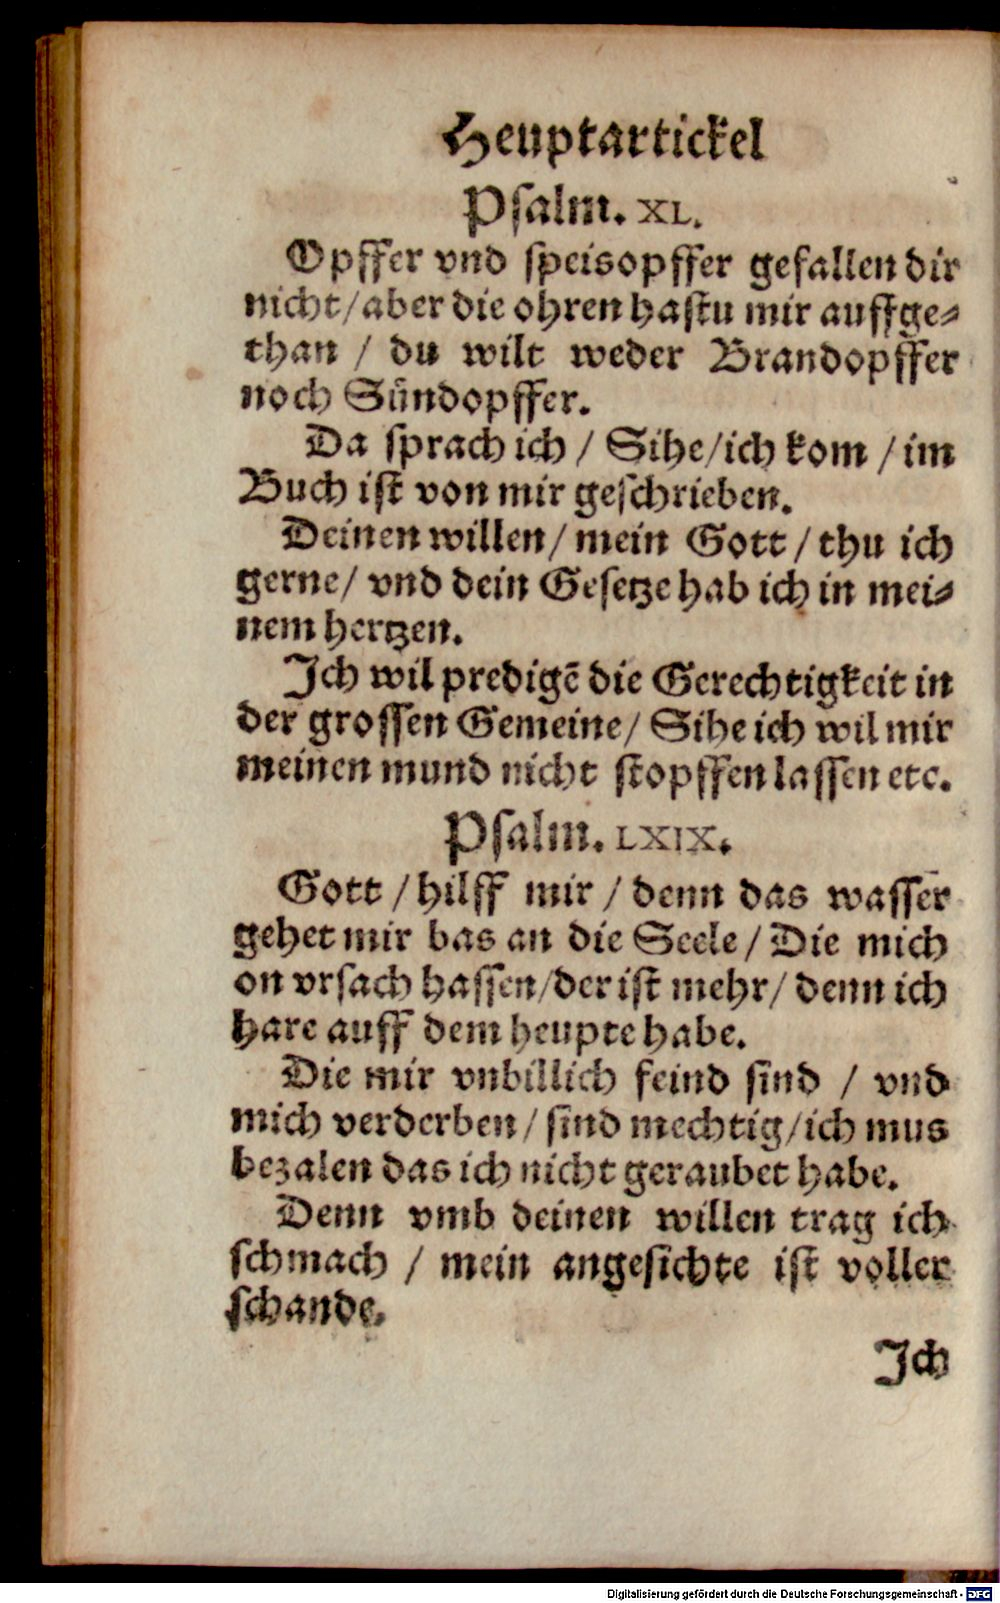 Heuptartickel
Psalm. XL.
Opffer vnd speisopffer gefallen dir
nicht/aber die ohren hastu mir auffge⸗
than / du wilt weder Brandopffer
noch Sündopffer.
Da sprach ich / Sihe/ich kom / im
Buch ist von mir geschrieben.
Deinen willen/ mein Gott / thu ich
gerne/ vnd dein Gesetze hab ich in mei⸗
nem hertzen.
Ich wil predigẽ die Gerechtigkeit in
der grossen Gemeine/ Sihe ich wil mir
meinen mund nicht stopffen lassen etc.
Psalm. LXIX.
Gott / hilff mir / denn das wasser
gehet mir bas an die Seele / Die mich
on vrsach hassen/der ist mehr/ denn ich
hare auff dem heupte habe.
Die mir vnbillich feind sind / vnd
mich verderben / sind mechtig/ich mus
bezalen das ich nicht geraubet habe.
Denn vmb deinen willen trag ich
schmach / mein angesichte ist voller
schande.
Ich
Digitalisierung gefördert durch die Deutsche Forschungsgemeinschaft - DFG